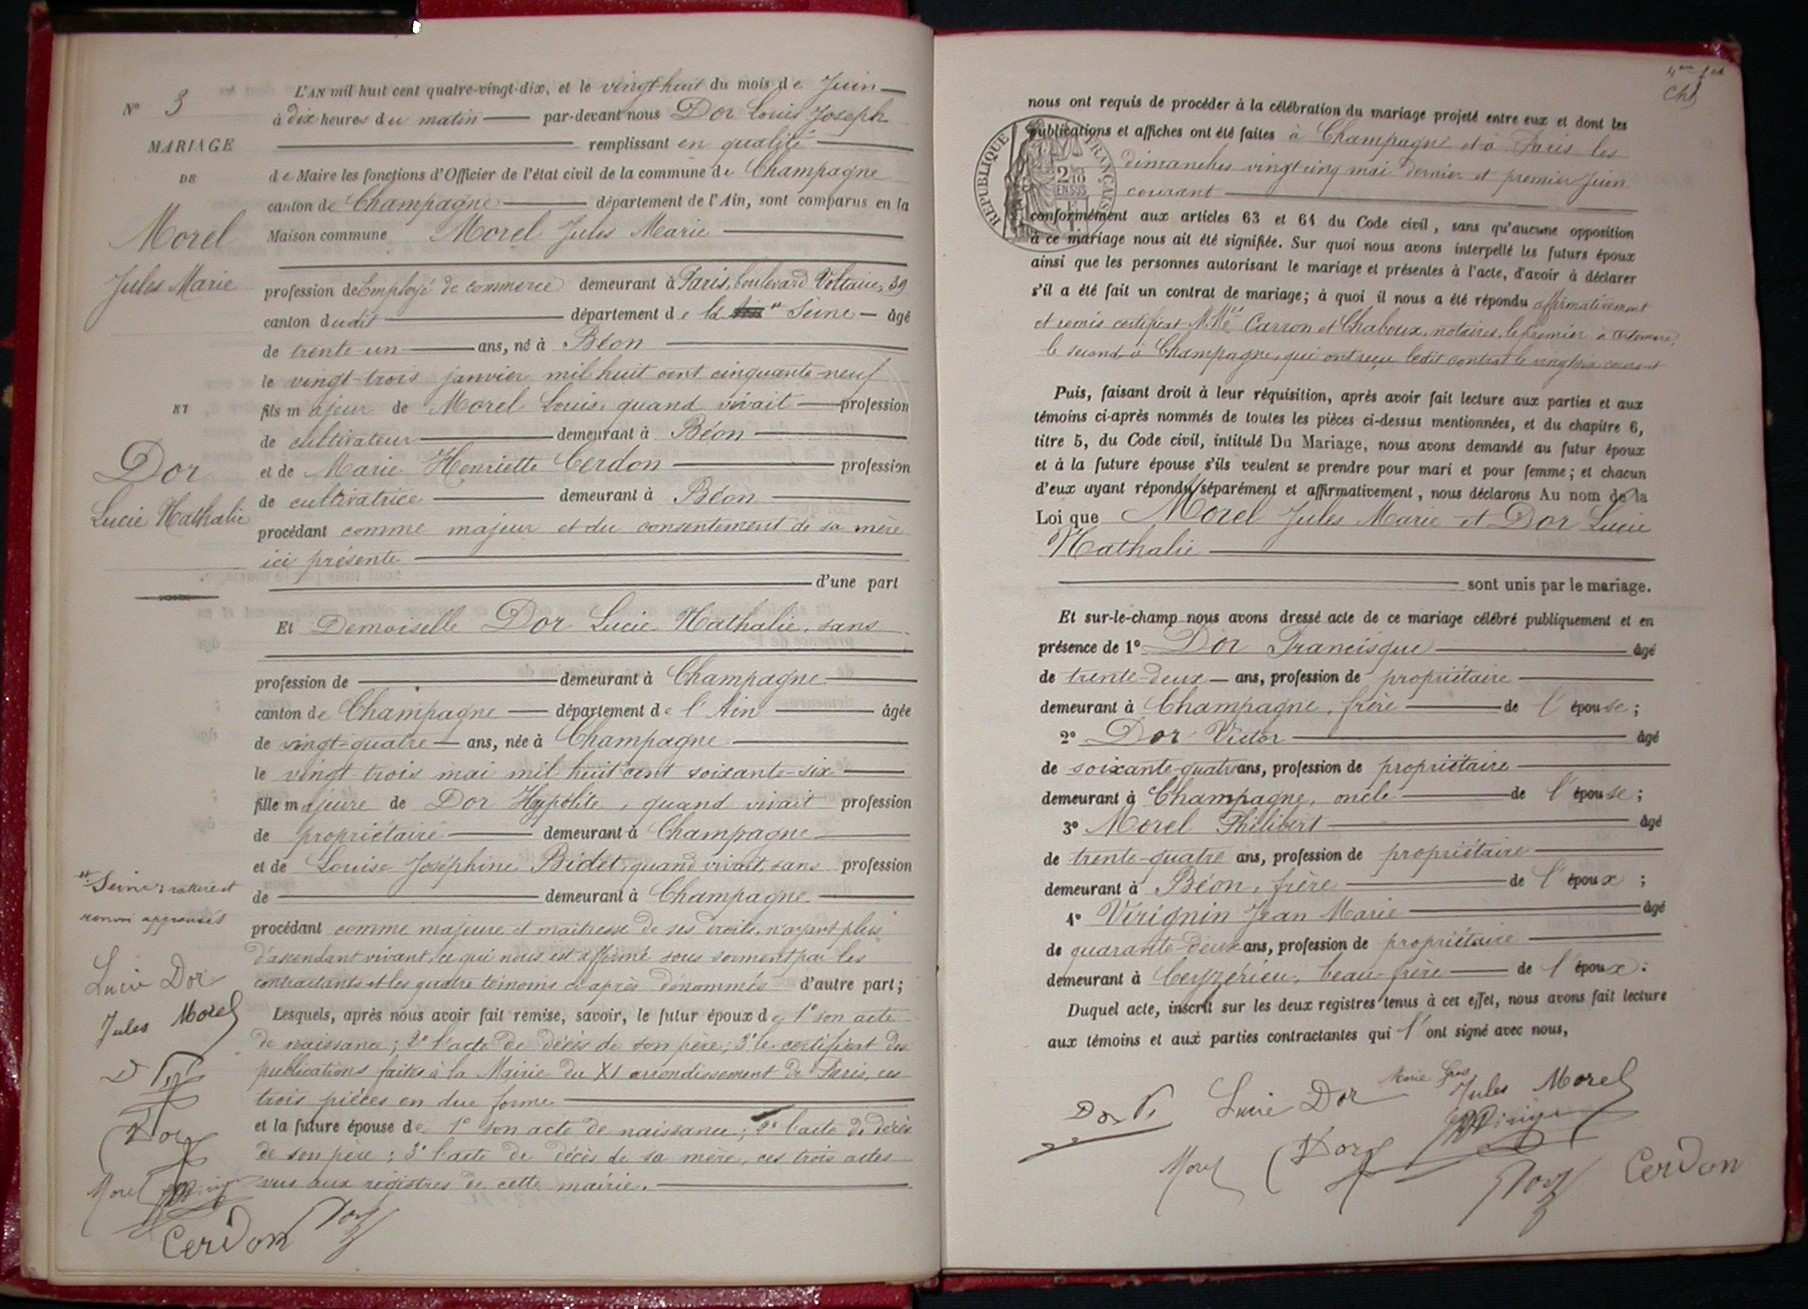 N° 3
MARIAGE
DE
Morel
Jules Marie
ET
Dor
Lucie Nathalie
L'AN mil huit cent quatre-vingt-dix, et le vingt huit du mois de Juin
à dix heures du matin par-devant nous Dor Louis Joseph
remplissant en qualité
de Maire les fonctions d'Officier de l'état civil de la commune de Champagne
canton de Champagne département de l'Ain, sont comparus en la
Maison commune Morel Jules Marie
profession de Employé de commerce demeurant à Paris, boulevard Voltaire, 39
canton dudit département de la Seine âgé
de trente un ans, né à Béon
le vingt-trois janvier mil huit cent cinquante-neuf
fils majeur de Morel Louis, quand vivait profession
de cultivateur demeurant à Béon
et de Marie Henriette Cerdon profession
de cultivatrice demeurant à Béon
procédant comme majeur et du consentement de sa mère
ici présente
d'une part
Et Demoiselle Dor Lucie Nathalie, sans
profession de demeurant à Champagne
canton de Champagne département de l'Ain âgée
de vingt-quatre ans, née à Champagne
le vingt trois mai mil huit cent soixante-six
fille majeure de Dor Hypolite, quand vivait profession
de propriétaire demeurant à Champagne
et de Louise Joséphine Bidet, quand vivait, sans profession
de demeurant à Champagne
procédant comme majeure et maitresse de ses droits, n'ayant plus
d'ascendant vivant, ce qui nous est affirmé sous serment par les
contractants et les quatre témoins ci-après dénommés d'autre part;
Lesquels, après nous avoir fait remise, savoir, le futur époux de 1° son acte
de naissance; 2° l'acte de décès de son père; 3° le certificat des
publications faites à la Mairie du XI arrondissement de Paris, ces
trois pièces en due forme
et la future épouse de 1° son acte de naissance; 2° l'acte de décès
de son père; 3° l'acte de décès de sa mère, ces trois actes
vus aux registres de cette mairie.
Seine
renvoi approuvés
Lucie Dor
Jules Morel
Dor
Morel
Cerdon Dor
nous ont requis de procéder à la célébration du mariage projeté entre eux et dont les
publications et affiches ont été faites à Champagne et à Paris les
dimanches vingt cinq mai dernier et premier Juin
courant
RÉPUBLIQUE FRANÇAISE
conformément aux articles 63 et 64 du Code civil, sans qu'aucune opposition
à ce mariage nous ait été signifiée. Sur quoi nous avons interpellé les futurs époux
ainsi que les personnes autorisant le mariage et présentes à l'acte, d'avoir à déclarer
s'il a été fait un contrat de mariage; à quoi il nous a été répondu affirmativement
et remis certificat Carron et Chaboux, notaires, le premier à
le second à Champagne, qui ont reçu ledit contrat le courant
Puis, faisant droit à leur réquisition, après avoir fait lecture aux parties et aux
témoins ci-après nommés de toutes les pièces ci-dessus mentionnées, et du chapitre 6,
titre 5, du Code civil, intitulé Du Mariage, nous avons demandé au futur époux
et à la future épouse s'ils veulent se prendre pour mari et pour femme; et chacun
d'eux ayant répondu séparément et affirmativement, nous déclarons Au nom de la
Loi que Morel Jules Marie et Dor Lucie
Nathalie
sont unis par le mariage.
Et sur-le-champ nous avons dressé acte de ce mariage célébré publiquement et en
présence de 1° Dor Francisque âgé
de trente-deux ans, profession de propriétaire
demeurant à Champagne, frère de l'épouse;
2° Dor Victor âgé
de soixante-quatre ans, profession de propriétaire
demeurant à Champagne, oncle de l'épouse;
3° Morel Philibert âgé
de trente-quatre ans, profession de propriétaire
demeurant à Béon, frère de l'époux;
4° Virignin Jean Marie âgé
de quarante-deux ans, profession de propriétaire
demeurant à Ceyzérieu, beau-frère de l'époux.
Duquel acte, inscrit sur les deux registres tenus à cet effet, nous avons fait lecture
aux témoins et aux parties contractantes qui l'ont signé avec nous,
Dor V. Lucie Dor Jules Morel
Morel Dor Dor Cerdon